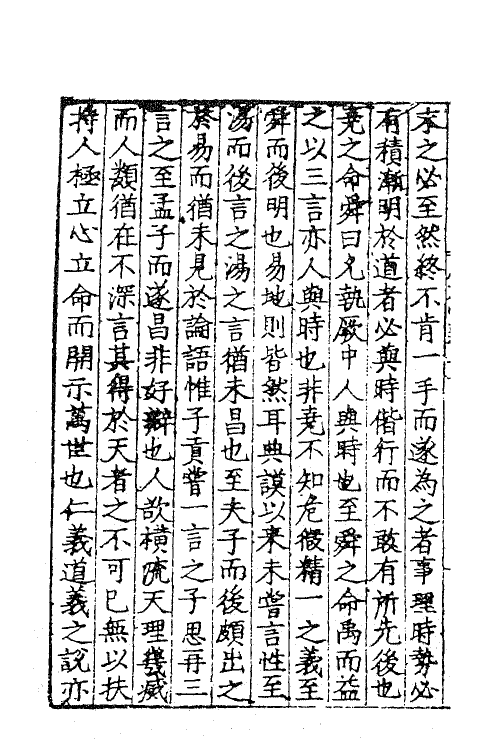 末之必至然終不肯一手而遂為之者事理時勢必
有積漸明於道者必與時偕行而不敢有所先後也
堯之命舜曰允執厥中人與時也至舜之命禹而益
之以三言亦人與時也非堯不知危微精一之義至
舜而後明也易地則皆然耳典謨以來未嘗言性至
湯而後言之湯之言猶未昌也至夫子而後頗出之
於易而猶未見於論語惟子貢嘗一言之子思再三
言之至孟子而遂昌非好辯也人欲橫流天理幾滅
而人類猶在不深言其得於天者之不可已無以扶
持人極立心立命而開示萬世也仁義道義之說亦